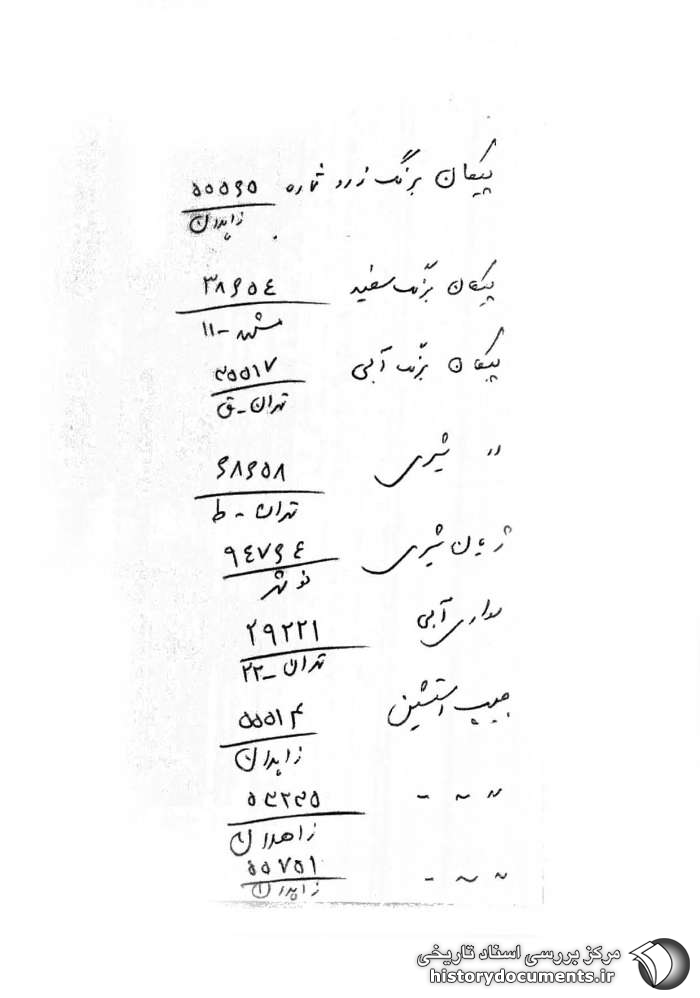 پیکان برنگ زرد شماره ۵۵۵۶۵
زاهدان
پیکان برنگ سفید ۳۸۶۵۴
مشهد - ۱۱
پیکان برنگ آبی ۲۵۵۱۷
تهران - ق
〃 شیری ۶۸۶۵۸
تهران - ط
ژیان شیری ۹۴۷۶۴
نوشهر
سواری آبی ۲۹۲۲۱
تهران - ۲۲
جیپ استیشن ۵۵۵۱۴
زاهدان
〃 〃 - ۵۴۲۴۵
زاهدان
〃 〃 - ۵۵۷۵۱
زاهدان
مرکز بررسی اسناد تاریخی
historydocuments.ir